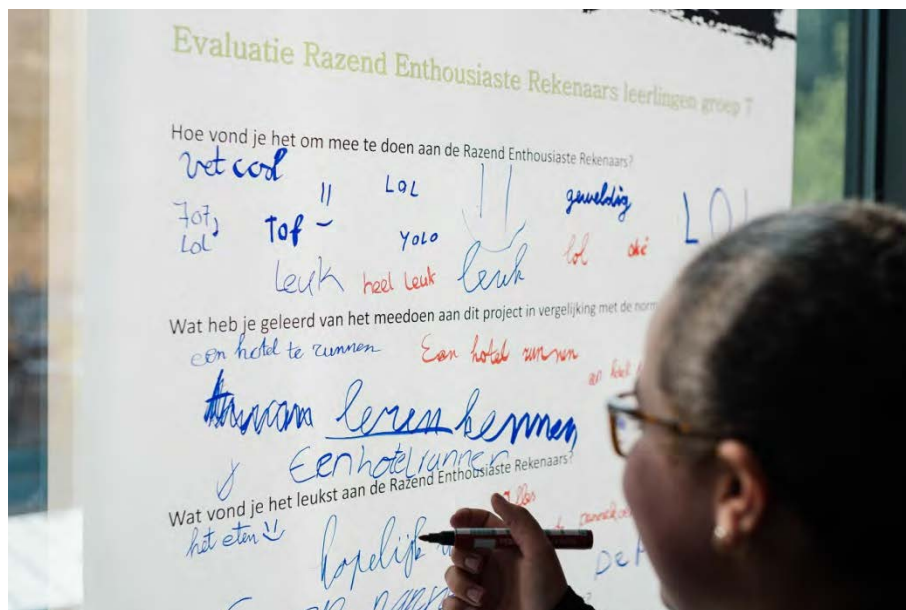 Evaluatie Razend Enthousiaste Rekenaars leerlingen groep 7
Hoe vond je het om mee te doen aan de Razend Enthousiaste Rekenaars?
vet cool
LOL
geweldig
LOL
Tof,
LOL
Tof
YOLO
lol
oké
Leuk
heel leuk
leuk
Wat heb je geleerd van het meedoen aan dit project in vergelijking met de
een hotel te runnen
Een hotel runnen
leren kennen
Een hotel runnen
Wat vond je het leukst aan de Razend Enthousiaste Rekenaars?
het eten
Alles
hopelijk